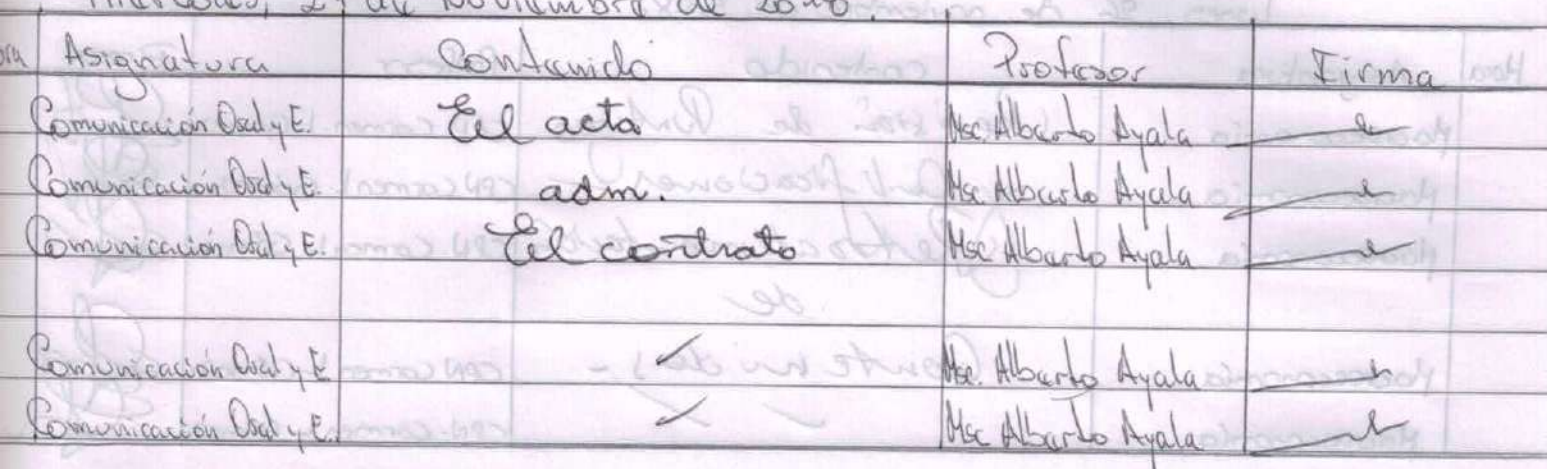 de Noviembre de
Asignatura Contenido Profesor Firma
Comunicación Oral y E. El acta Msc. Alberto Ayala
Comunicación Oral y E. adm. Msc. Alberto Ayala
Comunicación Oral y E. El contrato Msc. Alberto Ayala
Comunicación Oral y E. Msc. Alberto Ayala
Comunicación Oral y E. Msc Alberto Ayala